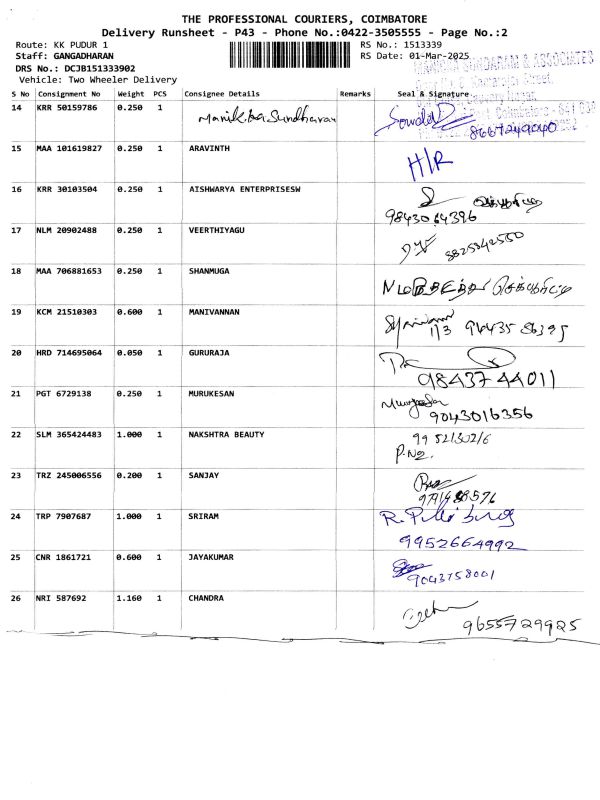 THE PROFESSIONAL COURIERS, COIMBATORE
Delivery Runsheet - P43 - Phone No.:0422-3505555 - Page No.:2
Route: KK PUDUR 1 RS No.: 1513339
Staff: GANGADHARAN RS Date: 01-Mar-2025
DRS No.: DCJB151333902
Vehicle: Two Wheeler Delivery
S No Consignment No Weight PCS Consignee Details Remarks Seal & Signature
14 KRR 50159786 0.250 1 8667249040
15 MAA 101619827 0.250 1 ARAVINTH H/R
16 KRR 30103504 0.250 1 AISHWARYA ENTERPRISESW
9843064396
17 NLM 20902488 0.250 1 VEERTHIYAGU 8825842550
18 MAA 706881653 0.250 1 SHANMUGA
19 KCM 21510303 0.600 1 MANIVANNAN
1/3 96435 86395
20 HRD 714695064 0.050 1 GURURAJA
98437 44011
21 PGT 6729138 0.250 1 MURUKESAN
9043016356
22 SLM 365424483 1.000 1 NAKSHTRA BEAUTY
P.No.
23 TRZ 245006556 0.200 1 SANJAY
24 TRP 7907687 1.000 1 SRIRAM
9952664992
25 CNR 1861721 0.600 1 JAYAKUMAR
9043758001
26 NRI 587692 1.160 1 CHANDRA
9655729925